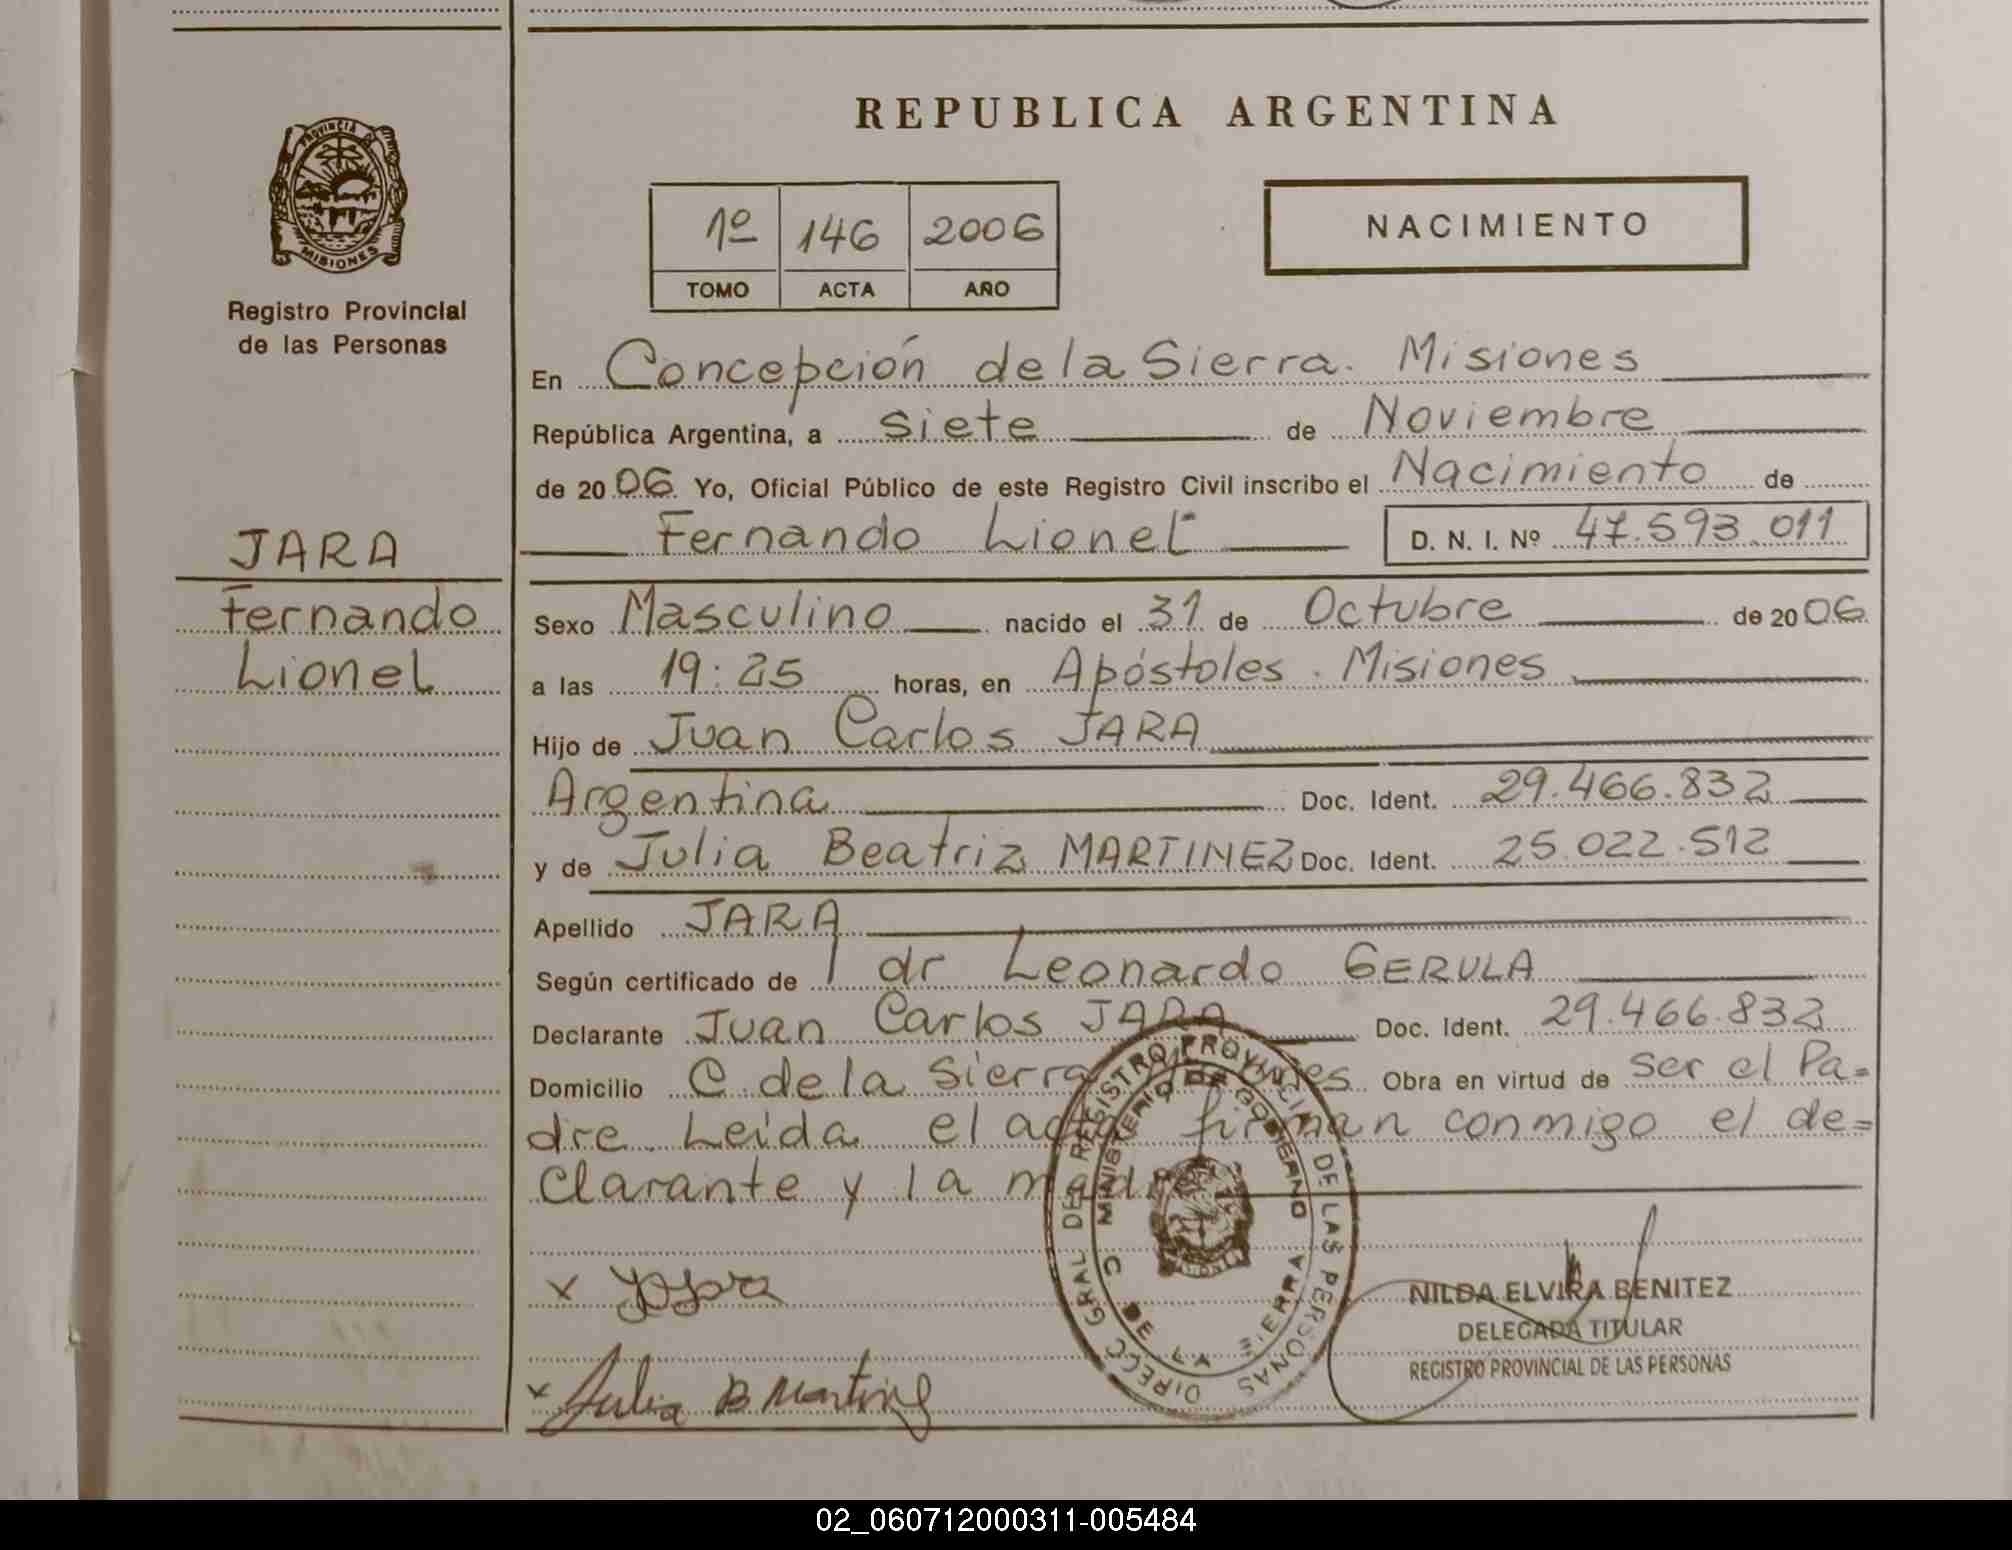 REPUBLICA ARGENTINA
PROVINCIA DE MISIONES
Registro Provincial
de las Personas
1º 146 2006
TOMO ACTA AÑO
NACIMIENTO
En Concepción de la Sierra. Misiones
República Argentina, a siete de Noviembre
de 2006 Yo, Oficial Público de este Registro Civil inscribo el Nacimiento de
Fernando Lionel D. N. I. Nº 47.593.011
JARA
Fernando
Lionel
Sexo Masculino nacido el 31 de Octubre de 2006
a las 19:25 horas, en Apóstoles. Misiones
Hijo de Juan Carlos JARA
Argentina Doc. Ident. 29.466.832
y de Julia Beatriz MARTINEZ Doc. Ident. 25.022.512
Apellido JARA
Según certificado de dr Leonardo GERULA
Declarante Juan Carlos JARA Doc. Ident. 29.466.832
Domicilio C. de la Sierra Obra en virtud de ser el Pa=
dre. Leída el acta firman conmigo el de=
clarante y la madre
DIRECC. GRAL DEL REGISTRO PROVINCIAL DE LAS PERSONAS
MINISTERIO DE GOBIERNO
C. DE LA SIERRA
x
x Julia B Martinez
NILDA ELVIRA BENITEZ
DELEGADA TITULAR
REGISTRO PROVINCIAL DE LAS PERSONAS
02_060712000311-005484